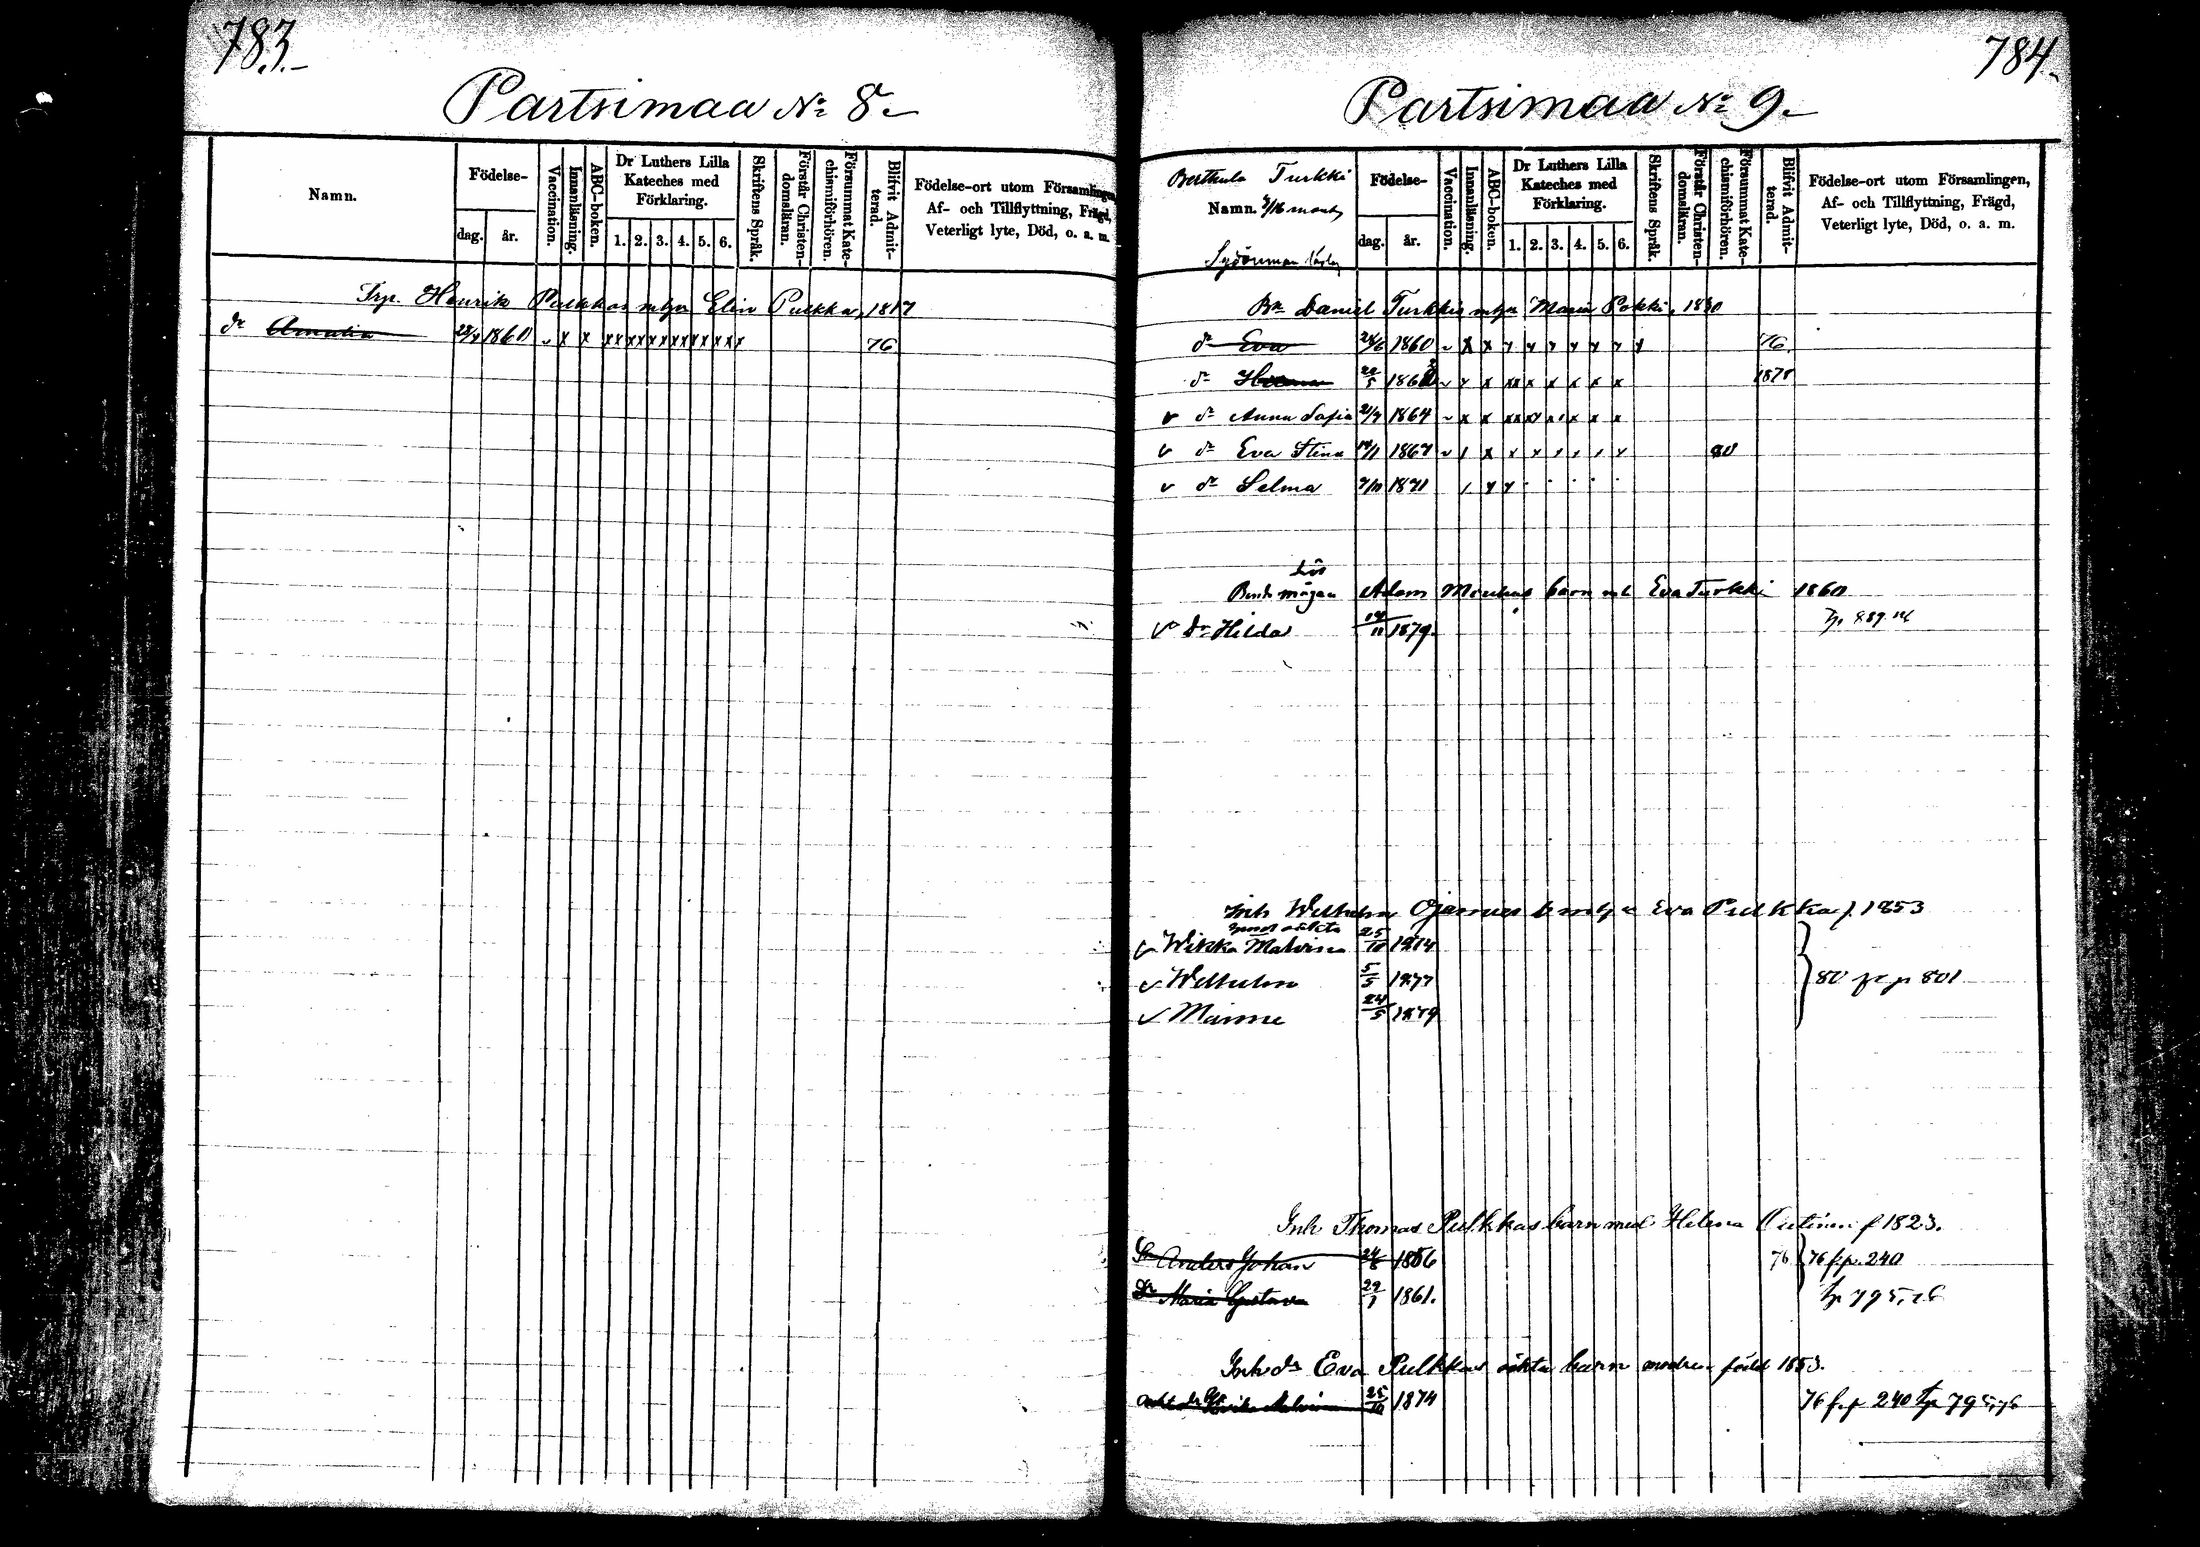 783.
Partsimaa No 8.
Namn.
Födelse-
dag.
år.
Vaccination.
Innanläsning.
ABC-boken.
Dr Luthers Lilla
Kateches med
Förklaring.
1. 2. 3. 4. 5. 6.
Skriftens Språk.
Förstår Christen-
domsläran.
Försummat Kate-
chismiförhören.
Blifvit Admit-
terad.
Födelse-ort utom Församlingen,
Af- och Tillflyttning, Frägd,
Veterligt lyte, Död, o. a. m.
Henrik Pulkkas Elin Pulkka, 1817
dr Amalia 1860 x x x x x x x x x x x x x x x 76
784.
Partsimaa No 9.
Berthula Turkki
Namn. 9/16 mant
Födelse-
dag.
år.
Vaccination.
Innanläsning.
ABC-boken.
Dr Luthers Lilla
Kateches med
Förklaring.
1. 2. 3. 4. 5. 6.
Skriftens Språk.
Förstår Christen-
domsläran.
Försummat Kate-
chismiförhören.
Blifvit Admit-
terad.
Födelse-ort utom Församlingen,
Af- och Tillflyttning, Frägd,
Veterligt lyte, Död, o. a. m.
Bn Daniel Turkkis Maria Pokki, 1830
dr Eva 24/6 1860 76.
dr 22/5 186
v dr Anna Sofia 21/7 1864
v dr Eva Stina 1867
v dr Selma 1871
Adam barn Eva Turkki 1860
v dr Hilda 14/11 1879.
Inh Wilhelm Eva Pulkka f. 1853
v Wikka Malvina 25/10 1874
v Wilhelm 5/5 1877
80 fr p 801
v Minne 24/5 1879
Inh Thomas Pulkkas barn med Helena f 1823.
Sn Anders Johan 24/6 1856 76 76 f.p. 240
Dr Maria Gustava 29/1 1861.
Inh dr Eva Pulkkas oäkta barn modren född 1853.
Malvina 25/10 1874 76 f.p 240